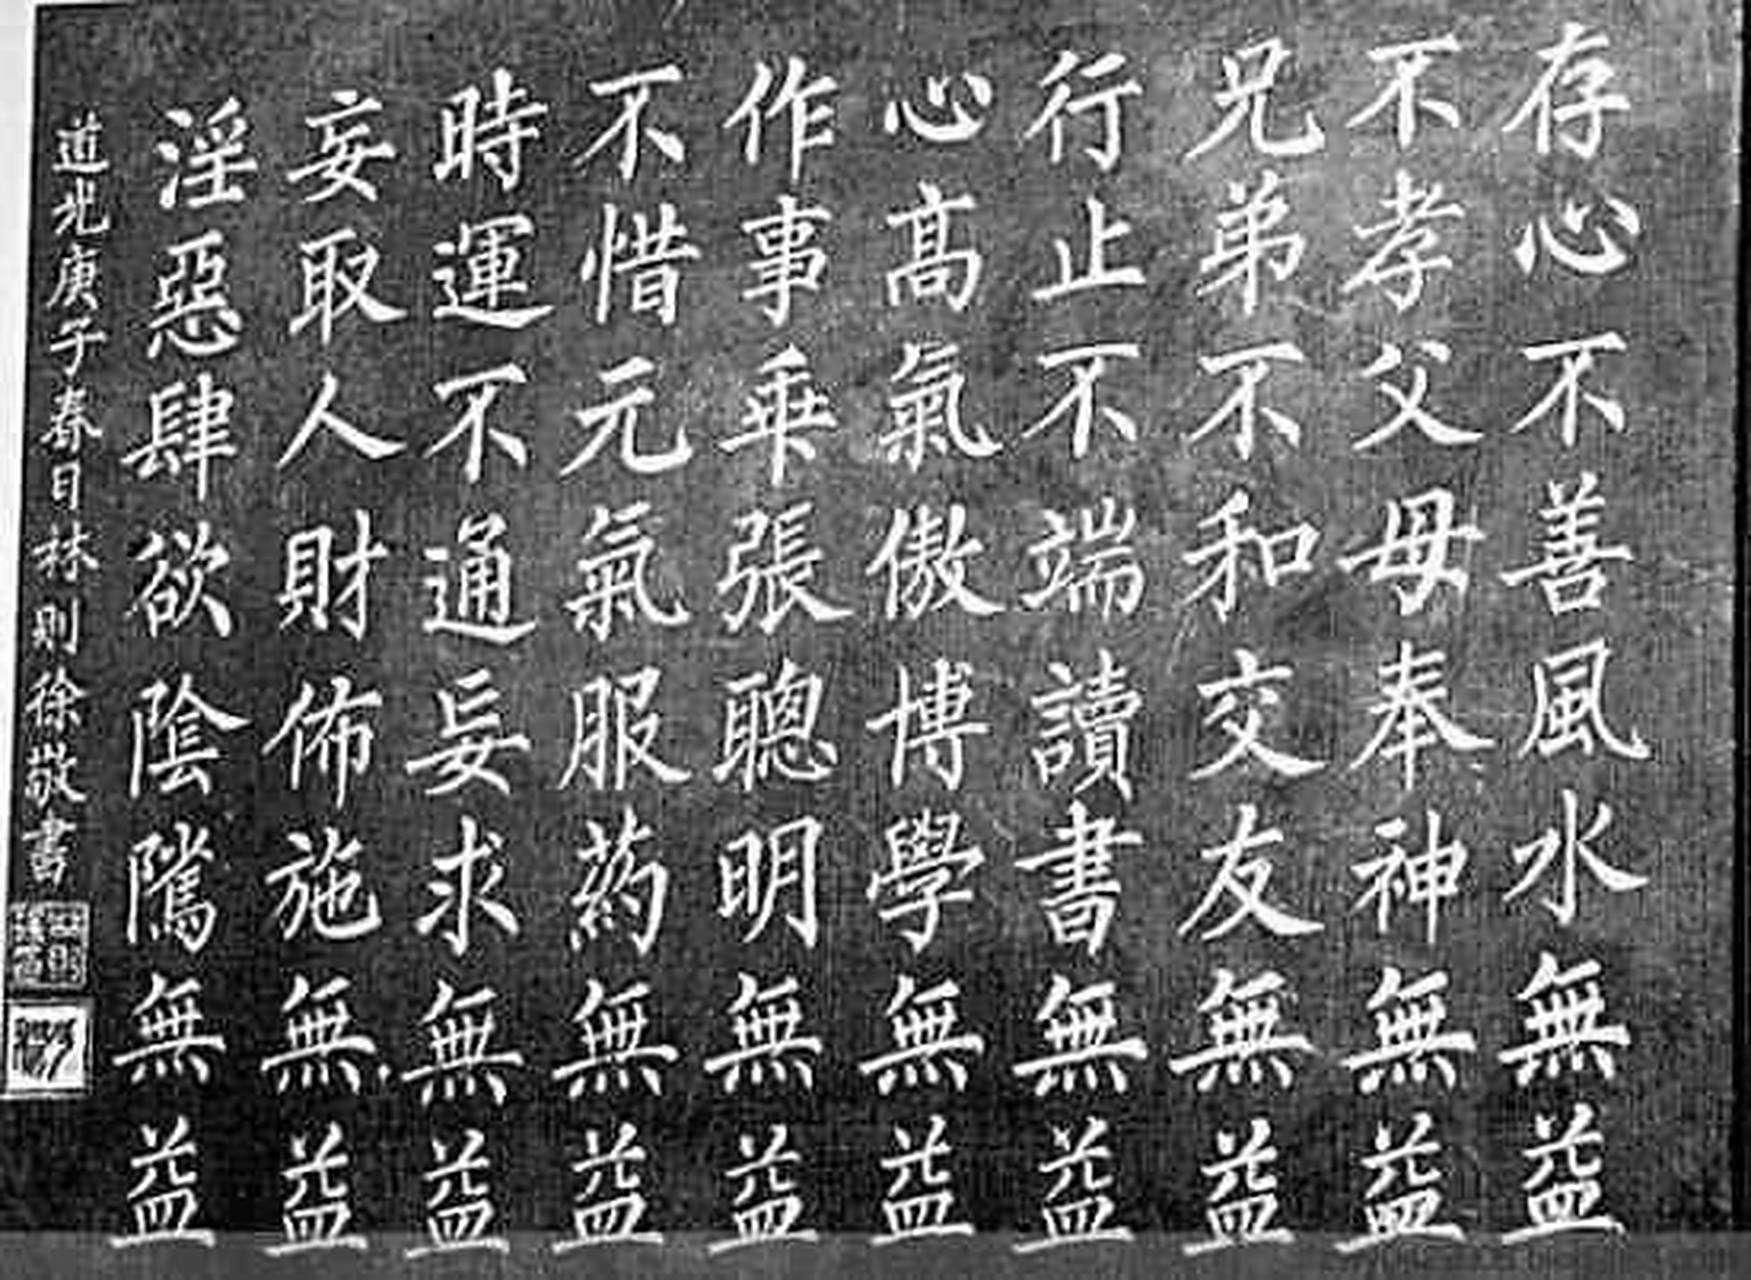 存心不善風水無益
不孝父母奉神無益
兄弟不和交友無益
行止不端讀書無益
心高氣傲博學無益
作事乖張聰明無益
不惜元氣服藥無益
時運不通妄求無益
妄取人財佈施無益
淫惡肆欲陰騭無益
道光庚子春日林則徐敬書